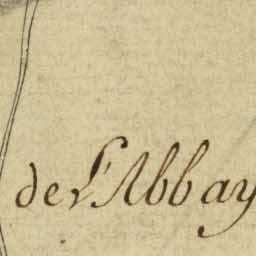 de L'Abbay